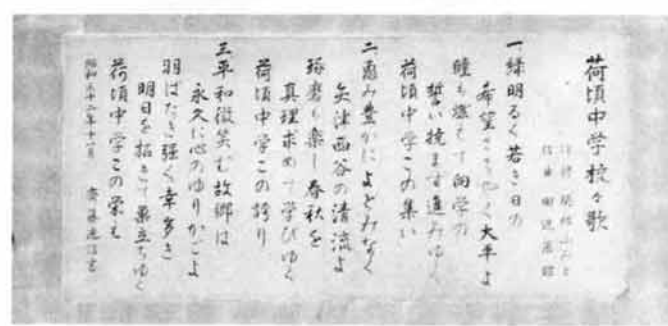 荷頃中学校々歌
作詞
作曲 田辺
一緑明るく若き日の
希望さゝやく大平よ
瞳も燃えて向学の
誓い撓まず進みゆく
荷頃中学この集い
二恵み豊かによどみなく
矢津西谷の清流よ
琢磨も楽し春秋を
真理求めて学びゆく
荷頃中学この誇り
三平和微笑む故郷は
永久に心のゆりかごよ
羽ばたき強く幸多き
明日を拓きて巣立ちゆく
荷頃中学この栄を
昭和三十二年十一月